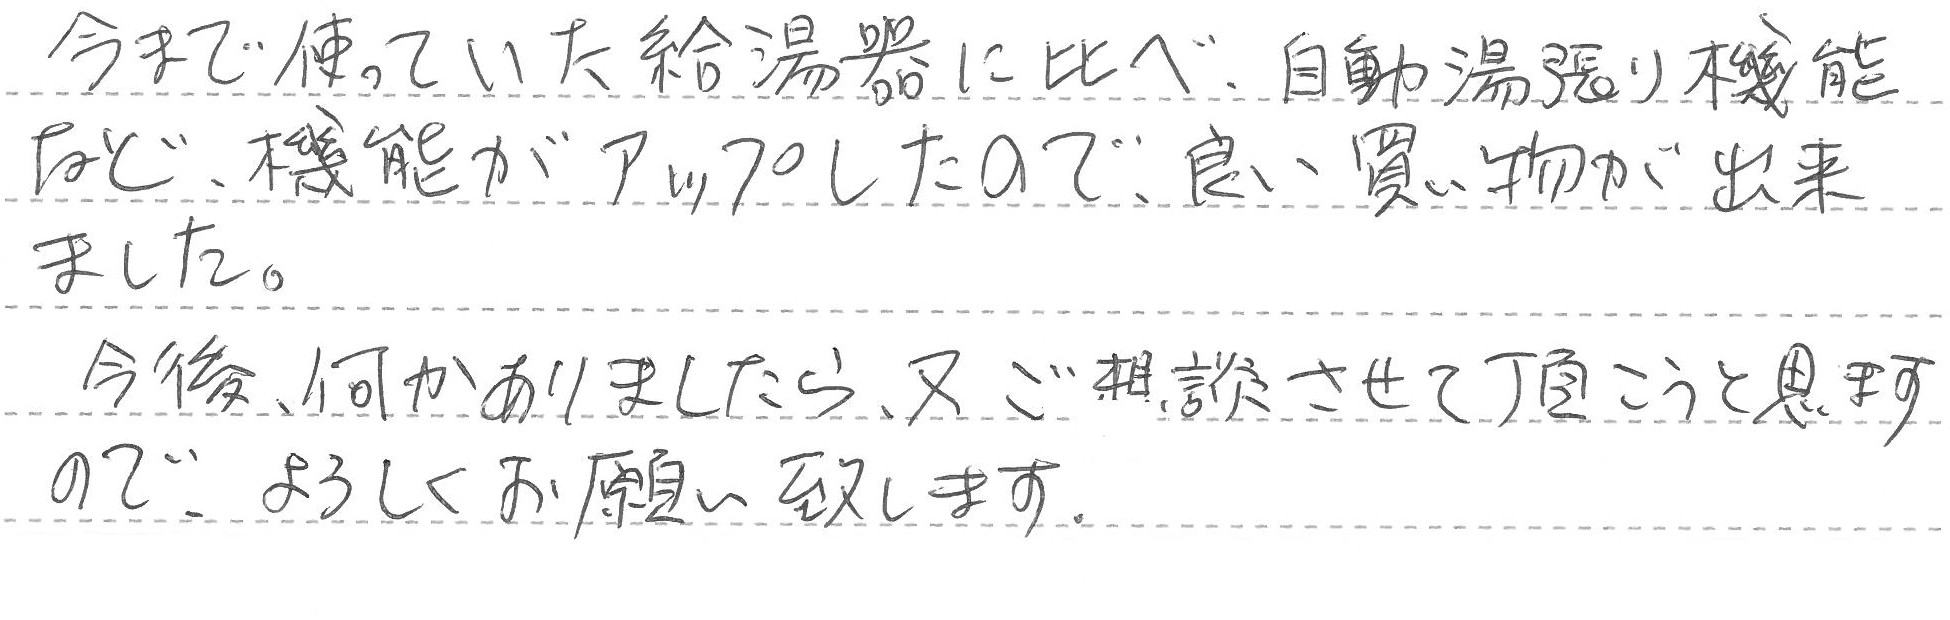 今まで使っていた給湯器に比べ、自動湯張り機能
など、機能がアップしたので、良い買い物が出来
ました。
今後、何かありましたら、又ご相談させて頂こうと思ます
ので、よろしくお願い致します.